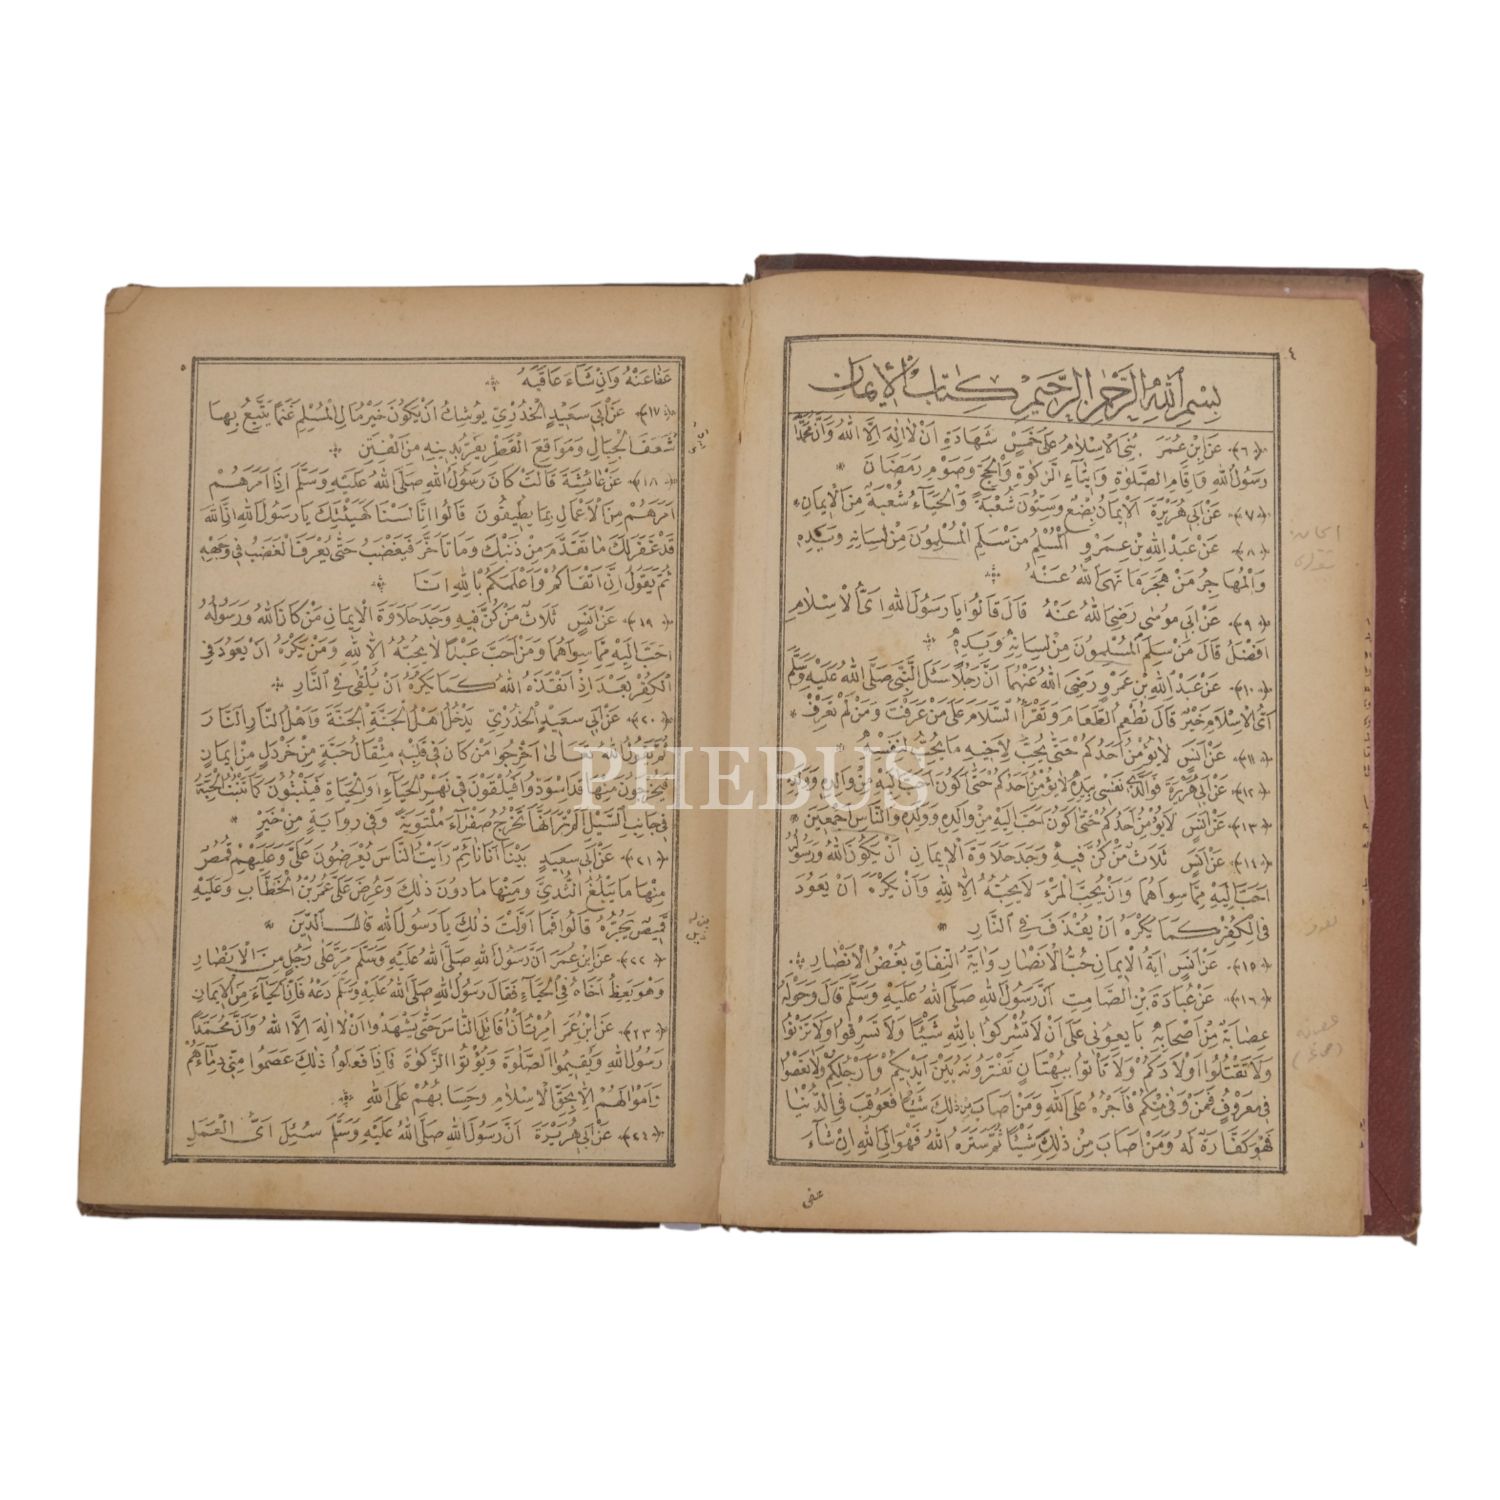 ٤
بِسْمِ اللهِ الرَّحْمٰنِ الرَّحِيمِ كِتَابُ الْإِيمَانِ
﴿٦﴾ عَنِ ابْنِ عُمَرَ بُنِيَ الْاِسْلَامُ عَلَى خَمْسٍ شَهَادَةِ اَنْ لَا اِلٰهَ اِلَّا اللهُ وَاَنَّ مُحَمَّدًا
رَسُولُ اللهِ وَاِقَامِ الصَّلٰوةِ وَاِيتَاءِ الزَّكٰوةِ وَالْحَجِّ وَصَوْمِ رَمَضَانَ
﴿٧﴾ عَنْ اَبِي هُرَيْرَةَ الْاِيمَانُ بِضْعٌ وَسِتُّونَ شُعْبَةً وَالْحَيَاءُ شُعْبَةٌ مِنَ الْاِيمَانِ
﴿٨﴾ عَنْ عَبْدِ اللهِ بْنِ عَمْرٍو الْمُسْلِمُ مَنْ سَلِمَ الْمُسْلِمُونَ مِنْ لِسَانِهِ وَيَدِهِ
وَالْمُهَاجِرُ مَنْ هَجَرَ مَا نَهَى اللهُ عَنْهُ
﴿٩﴾ عَنْ اَبِي مُوسٰى رَضِيَ اللهُ عَنْهُ قَالَ قَالُوا يَا رَسُولَ اللهِ اَيُّ الْاِسْلَامِ
اَفْضَلُ قَالَ مَنْ سَلِمَ الْمُسْلِمُونَ مِنْ لِسَانِهِ وَيَدِهِ
﴿١٠﴾ عَنْ عَبْدِ اللهِ بْنِ عَمْرٍو رَضِيَ اللهُ عَنْهُمَا اَنَّ رَجُلًا سَئَلَ النَّبِيَّ صَلَّى اللهُ عَلَيْهِ وَسَلَّمَ
اَيُّ الْاِسْلَامِ خَيْرٌ قَالَ تُطْعِمُ الطَّعَامَ وَتَقْرَأُ السَّلَامَ عَلَى مَنْ عَرَفْتَ وَمَنْ لَمْ تَعْرِفْ
﴿١١﴾ عَنْ اَنَسٍ لَا يُؤْمِنُ اَحَدُكُمْ حَتّٰى يُحِبَّ لِاَخِيهِ مَا يُحِبُّ لِنَفْسِهِ
﴿١٢﴾ عَنْ اَبِي هُرَيْرَةَ فَوَالَّذِي نَفْسِي بِيَدِهِ لَا يُؤْمِنُ اَحَدُكُمْ حَتّٰى اَكُونَ اَحَبَّ اِلَيْهِ مِنْ وَالِدِهِ وَوَلَدِهِ
﴿١٣﴾ عَنْ اَنَسٍ لَا يُؤْمِنُ اَحَدُكُمْ حَتّٰى اَكُونَ اَحَبَّ اِلَيْهِ مِنْ وَالِدِهِ وَوَلَدِهِ وَالنَّاسِ اَجْمَعِينَ
﴿١٤﴾ عَنْ اَنَسٍ ثَلَاثٌ مَنْ كُنَّ فِيهِ وَجَدَ حَلَاوَةَ الْاِيمَانِ اَنْ يَكُونَ اللهُ وَرَسُولُهُ
اَحَبَّ اِلَيْهِ مِمَّا سِوَاهُمَا وَاَنْ يُحِبَّ الْمَرْءَ لَا يُحِبُّهُ اِلَّا لِلّٰهِ وَاَنْ يَكْرَهَ اَنْ يَعُودَ
فِي الْكُفْرِ كَمَا يَكْرَهُ اَنْ يُقْذَفَ فِي النَّارِ
﴿١٥﴾ عَنْ اَنَسٍ اٰيَةُ الْاِيمَانِ حُبُّ الْاَنْصَارِ وَاٰيَةُ النِّفَاقِ بُغْضُ الْاَنْصَارِ
﴿١٦﴾ عَنْ عُبَادَةَ بْنِ الصَّامِتِ اَنَّ رَسُولَ اللهِ صَلَّى اللهُ عَلَيْهِ وَسَلَّمَ قَالَ وَحَوْلَهُ
عِصَابَةٌ مِنْ اَصْحَابِهِ بَايِعُونِي عَلَى اَنْ لَا تُشْرِكُوا بِاللهِ شَيْئًا وَلَا تَسْرِقُوا وَلَا تَزْنُوا
وَلَا تَقْتُلُوا اَوْلَادَكُمْ وَلَا تَأْتُوا بِبُهْتَانٍ تَفْتَرُونَهُ بَيْنَ اَيْدِيكُمْ وَاَرْجُلِكُمْ وَلَا تَعْصُوا
فِي مَعْرُوفٍ فَمَنْ وَفٰى مِنْكُمْ فَاَجْرُهُ عَلَى اللهِ وَمَنْ اَصَابَ مِنْ ذٰلِكَ شَيْئًا فَعُوقِبَ فِي الدُّنْيَا
فَهُوَ كَفَّارَةٌ لَهُ وَمَنْ اَصَابَ مِنْ ذٰلِكَ شَيْئًا ثُمَّ سَتَرَهُ اللهُ فَهُوَ اِلَى اللهِ اِنْ شَاءَ
عفى
٥
عَفَا عَنْهُ وَاِنْ شَاءَ عَاقَبَهُ
﴿١٧﴾ عَنْ اَبِي سَعِيدٍ الْخُدْرِيِّ يُوشِكُ اَنْ يَكُونَ خَيْرَ مَالِ الْمُسْلِمِ غَنَمًا يَتَّبِعُ بِهَا
شَعَفَ الْجِبَالِ وَمَوَاقِعَ الْقَطْرِ يَفِرُّ بِدِينِهِ مِنَ الْفِتَنِ
﴿١٨﴾ عَنْ عَائِشَةَ قَالَتْ كَانَ رَسُولُ اللهِ صَلَّى اللهُ عَلَيْهِ وَسَلَّمَ اِذَا اَمَرَهُمْ
اَمَرَهُمْ مِنَ الْاَعْمَالِ بِمَا يُطِيقُونَ قَالُوا اِنَّا لَسْنَا كَهَيْئَتِكَ يَا رَسُولَ اللهِ اِنَّ اللهَ
قَدْ غَفَرَ لَكَ مَا تَقَدَّمَ مِنْ ذَنْبِكَ وَمَا تَاَخَّرَ فَيَغْضَبُ حَتّٰى يُعْرَفَ الْغَضَبُ فِي وَجْهِهِ
ثُمَّ يَقُولُ اِنَّ اَتْقَاكُمْ وَاَعْلَمَكُمْ بِاللهِ اَنَا
﴿١٩﴾ عَنْ اَنَسٍ ثَلَاثٌ مَنْ كُنَّ فِيهِ وَجَدَ حَلَاوَةَ الْاِيمَانِ مَنْ كَانَ اللهُ وَرَسُولُهُ
اَحَبَّ اِلَيْهِ مِمَّا سِوَاهُمَا وَمَنْ اَحَبَّ عَبْدًا لَا يُحِبُّهُ اِلَّا لِلّٰهِ وَمَنْ يَكْرَهُ اَنْ يَعُودَ فِي
الْكُفْرِ بَعْدَ اِذْ اَنْقَذَهُ اللهُ كَمَا يَكْرَهُ اَنْ يُلْقٰى فِي النَّارِ
﴿٢٠﴾ عَنْ اَبِي سَعِيدٍ الْخُدْرِيِّ يَدْخُلُ اَهْلُ الْجَنَّةِ الْجَنَّةَ وَاَهْلُ النَّارِ النَّارَ
ثُمَّ يَقُولُ اللهُ تَعَالٰى اَخْرِجُوا مَنْ كَانَ فِي قَلْبِهِ مِثْقَالُ حَبَّةٍ مِنْ خَرْدَلٍ مِنْ اِيمَانٍ
فَيُخْرَجُونَ مِنْهَا قَدِ اسْوَدُّوا فَيُلْقَوْنَ فِي نَهَرِ الْحَيَاءِ اَوِ الْحَيَاةِ فَيَنْبُتُونَ كَمَا تَنْبُتُ الْحِبَّةُ
فِي جَانِبِ السَّيْلِ اَلَمْ تَرَ اَنَّهَا تَخْرُجُ صَفْرَاءَ مُلْتَوِيَةً وَفِي رِوَايَةٍ مِنْ خَيْرٍ
﴿٢١﴾ عَنْ اَبِي سَعِيدٍ بَيْنَا اَنَا نَائِمٌ رَاَيْتُ النَّاسَ يُعْرَضُونَ عَلَيَّ وَعَلَيْهِمْ قُمُصٌ
مِنْهَا مَا يَبْلُغُ الثُّدِيَّ وَمِنْهَا مَا دُونَ ذٰلِكَ وَعُرِضَ عَلَيَّ عُمَرُ بْنُ الْخَطَّابِ وَعَلَيْهِ
قَمِيصٌ يَجُرُّهُ قَالُوا فَمَا اَوَّلْتَ ذٰلِكَ يَا رَسُولَ اللهِ قَالَ الدِّينَ
﴿٢٢﴾ عَنِ ابْنِ عُمَرَ اَنَّ رَسُولَ اللهِ صَلَّى اللهُ عَلَيْهِ وَسَلَّمَ مَرَّ عَلَى رَجُلٍ مِنَ الْاَنْصَارِ
وَهُوَ يَعِظُ اَخَاهُ فِي الْحَيَاءِ فَقَالَ رَسُولُ اللهِ صَلَّى اللهُ عَلَيْهِ وَسَلَّمَ دَعْهُ فَاِنَّ الْحَيَاءَ مِنَ الْاِيمَانِ
﴿٢٣﴾ عَنِ ابْنِ عُمَرَ اُمِرْتُ اَنْ اُقَاتِلَ النَّاسَ حَتّٰى يَشْهَدُوا اَنْ لَا اِلٰهَ اِلَّا اللهُ وَاَنَّ مُحَمَّدًا
رَسُولُ اللهِ وَيُقِيمُوا الصَّلٰوةَ وَيُؤْتُوا الزَّكٰوةَ فَاِذَا فَعَلُوا ذٰلِكَ عَصَمُوا مِنِّي دِمَاءَهُمْ
وَاَمْوَالَهُمْ اِلَّا بِحَقِّ الْاِسْلَامِ وَحِسَابُهُمْ عَلَى اللهِ
﴿٢٤﴾ عَنْ اَبِي هُرَيْرَةَ اَنَّ رَسُولَ اللهِ صَلَّى اللهُ عَلَيْهِ وَسَلَّمَ سُئِلَ اَيُّ الْعَمَلِ
PHEBUS